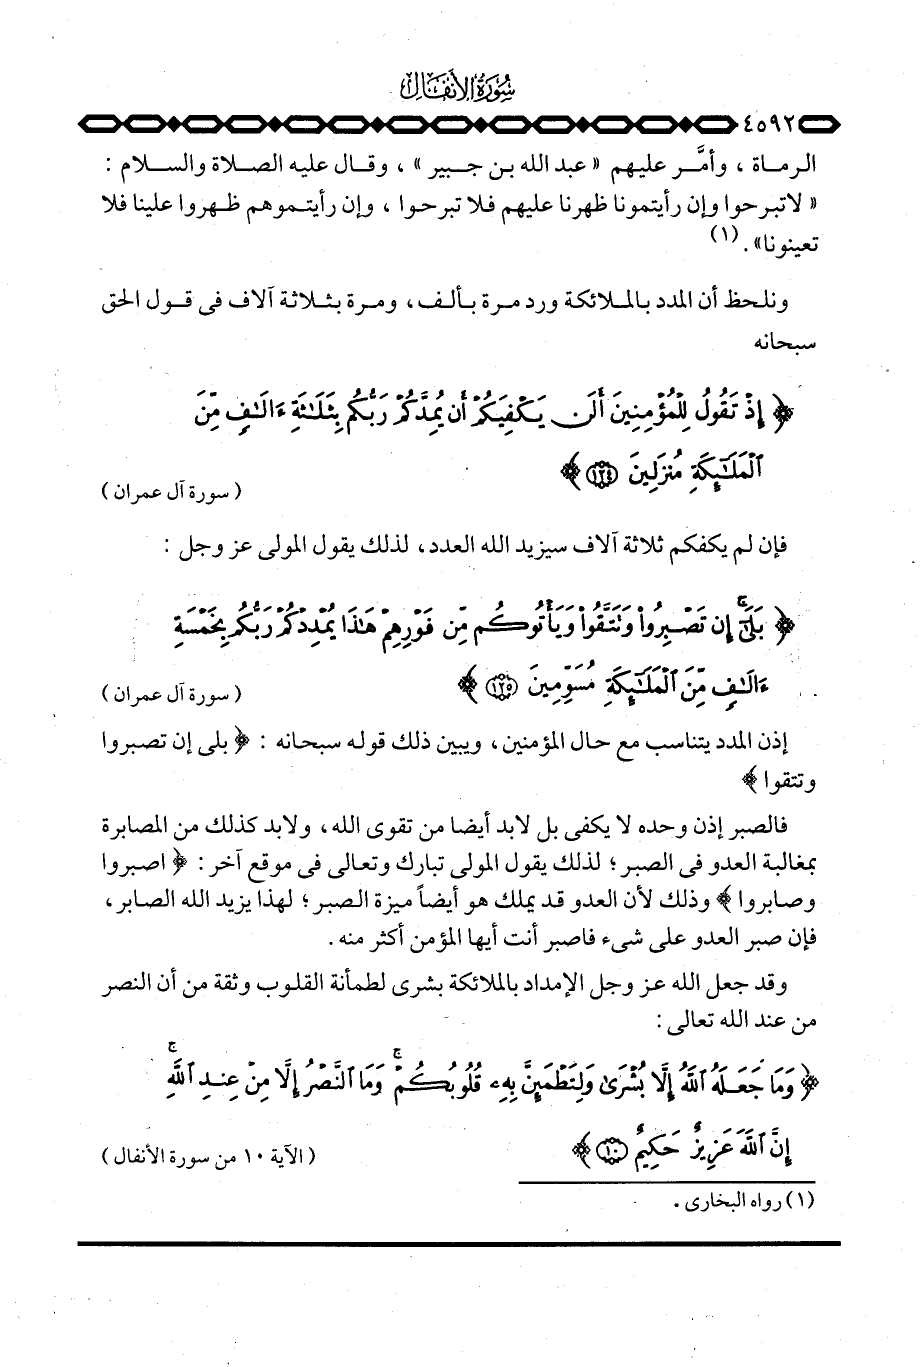 سورة الأنفال
٤٥٩٢
الرماة ، وأمَّر عليهم « عبد الله بن جبير » ، وقال عليه الصلاة والسلام :
« لاتبرحوا وإن رأيتمونا ظهرنا عليهم فلا تبرحوا ، وإن رأيتموهم ظهروا علينا فلا
تعينونا» . (١)
ونلحظ أن المدد بالملائكة ورد مرة بألف، ومرة بثلاثة آلاف فى قول الحق
سبحانه
﴿ إِذْ تَقُولُ لِلْمُؤْمِنِينَ أَلَن يَكْفِيَكُمْ أَن يُمِدَّكُمْ رَبُّكُم بِثَلَٰثَةِ ءَالَٰفٍ مِّنَ
ٱلْمَلَٰٓئِكَةِ مُنزَلِينَ ١٢٤ ﴾
( سورة آل عمران )
فإن لم يكفكم ثلاثة آلاف سيزيد الله العدد، لذلك يقول المولى عز وجل :
﴿ بَلَىٰٓۚ إِن تَصْبِرُوا۟ وَتَتَّقُوا۟ وَيَأْتُوكُم مِّن فَوْرِهِمْ هَٰذَا يُمْدِدْكُمْ رَبُّكُم بِخَمْسَةِ
ءَالَٰفٍ مِّنَ ٱلْمَلَٰٓئِكَةِ مُسَوِّمِينَ ١٢٥ ﴾
( سورة آل عمران )
إذن المدد يتناسب مع حال المؤمنين، ويبين ذلك قوله سبحانه : ﴿ بلى إن تصبروا
وتتقوا ﴾
فالصبر إذن وحده لا يكفى بل لابد أيضا من تقوى الله، ولابد كذلك من المصابرة
بمغالبة العدو فى الصبر ؛ لذلك يقول المولى تبارك وتعالى فى موقع آخر : ﴿ اصبروا
وصابروا ﴾ وذلك لأن العدو قد يملك هو أيضاً ميزة الصبر ؛ لهذا يزيد الله الصابر،
فإن صبر العدو على شىء فاصبر أنت أيها المؤمن أكثر منه.
وقد جعل الله عز وجل الإمداد بالملائكة بشرى لطمأنة القلوب وثقة من أن النصر
من عند الله تعالى :
﴿ وَمَا جَعَلَهُ ٱللَّهُ إِلَّا بُشْرَىٰ وَلِتَطْمَئِنَّ بِهِۦ قُلُوبُكُمْۚ وَمَا ٱلنَّصْرُ إِلَّا مِنْ عِندِ ٱللَّهِۚ
إِنَّ ٱللَّهَ عَزِيزٌ حَكِيمٌ ١٠ ﴾
( الآية ١٠ من سورة الأنفال )
(١) رواه البخارى .